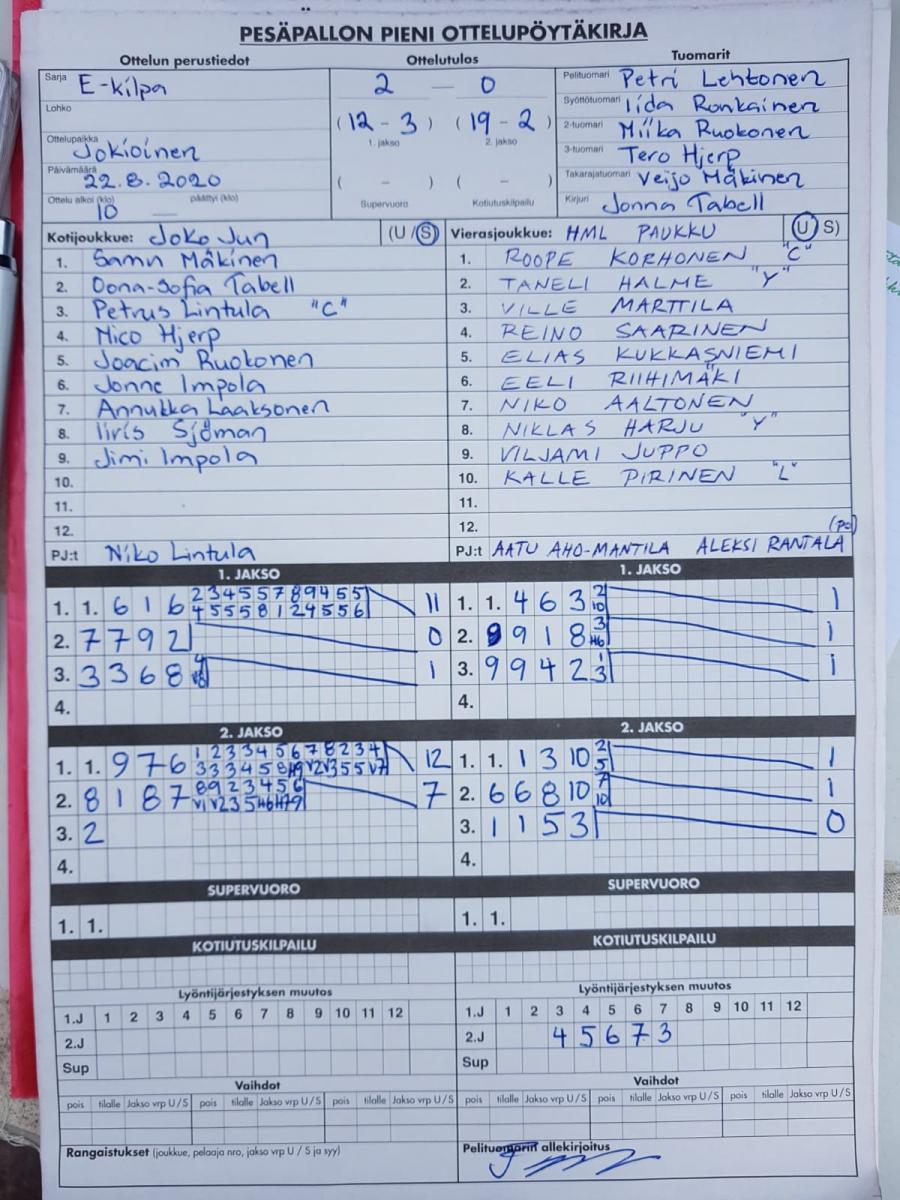 PESÄPALLON PIENI OTTELUPÖYTÄKIRJA
Ottelun perustiedot Ottelutulos Tuomarit
Sarja E-kilpa 2 – 0 Pelituomari Petri Lehtonen
Lohko Syöttötuomari Iida Ronkainen
(12 - 3) (19 - 2) 2-tuomari Miika Ruokonen
Ottelupaikka Jokioinen 1. jakso 2. jakso 3-tuomari Tero Hjerp
Päivämäärä 22.8.2020 ( - ) ( - ) Takarajatuomari Veijo Mäkinen
Ottelu alkoi (klo) 10 päättyi (klo) Supervuoro Kotiutuskilpailu Kirjuri Jonna Tabell
Kotijoukkue: Joko Jun (U / S) Vierasjoukkue: HML PAUKKU (U / S)
1. Samu Mäkinen 1. ROOPE KORHONEN "C"
2. Oona-Sofia Tabell 2. TANELI HALME "Y"
3. Petrus Lintula "C" 3. VILLE MARTTILA
4. Mico Hjerp 4. REINO SAARINEN
5. Joacim Ruokonen 5. ELIAS KUKKASNIEMI
6. Jonne Impola 6. EELI RIIHIMÄKI
7. Annukka Laaksonen 7. NIKO AALTONEN
8. Iiris Sjöman 8. NIKLAS HARJU "Y"
9. Jimi Impola 9. VILJAMI JUPPO
10. 10. KALLE PIRINEN "L"
11. 11.
12. 12.
PJ:t Niko Lintula PJ:t AATU AHO-MANTILA ALEKSI RANTALA (po)
1. JAKSO 1. JAKSO
1. 1. 6 1 6 2 3 4 5 5 7 8 9 4 5 5 11 1. 1. 4 6 3 2 1
4 5 5 5 8 1 2 4 5 5 6 10
2. 7 7 9 2 0 2. 9 9 1 8 3 1
H6
3. 3 3 6 8 4 1 3. 9 9 4 2 1 1
3
4. 4.
2. JAKSO 2. JAKSO
1. 1. 9 7 6 1 2 3 3 4 5 6 7 8 2 3 4 12 1. 1. 1 3 10 2 1
3 3 3 4 5 8 H9 V2 V3 5 5 V7 5
2. 8 1 8 7 8 9 2 3 4 5 6 7 2. 6 6 8 10 7 1
V1 V2 3 5 H6 H7 9 10
3. 2 3. 1 1 5 3 0
4. 4.
SUPERVUORO SUPERVUORO
1. 1. 1. 1.
KOTIUTUSKILPAILU KOTIUTUSKILPAILU
Lyöntijärjestyksen muutos Lyöntijärjestyksen muutos
1.J 1 2 3 4 5 6 7 8 9 10 11 12 1.J 1 2 3 4 5 6 7 8 9 10 11 12
2.J 2.J 4 5 6 7 3
Sup Sup
Vaihdot Vaihdot
pois tilalle Jakso vrp U / S pois tilalle Jakso vrp U / S pois tilalle Jakso vrp U / S pois tilalle Jakso vrp U / S pois tilalle Jakso vrp U / S pois tilalle Jakso vrp U / S
Rangaistukset (joukkue, pelaaja nro, jakso vrp U / S ja syy) Pelituomarin allekirjoitus